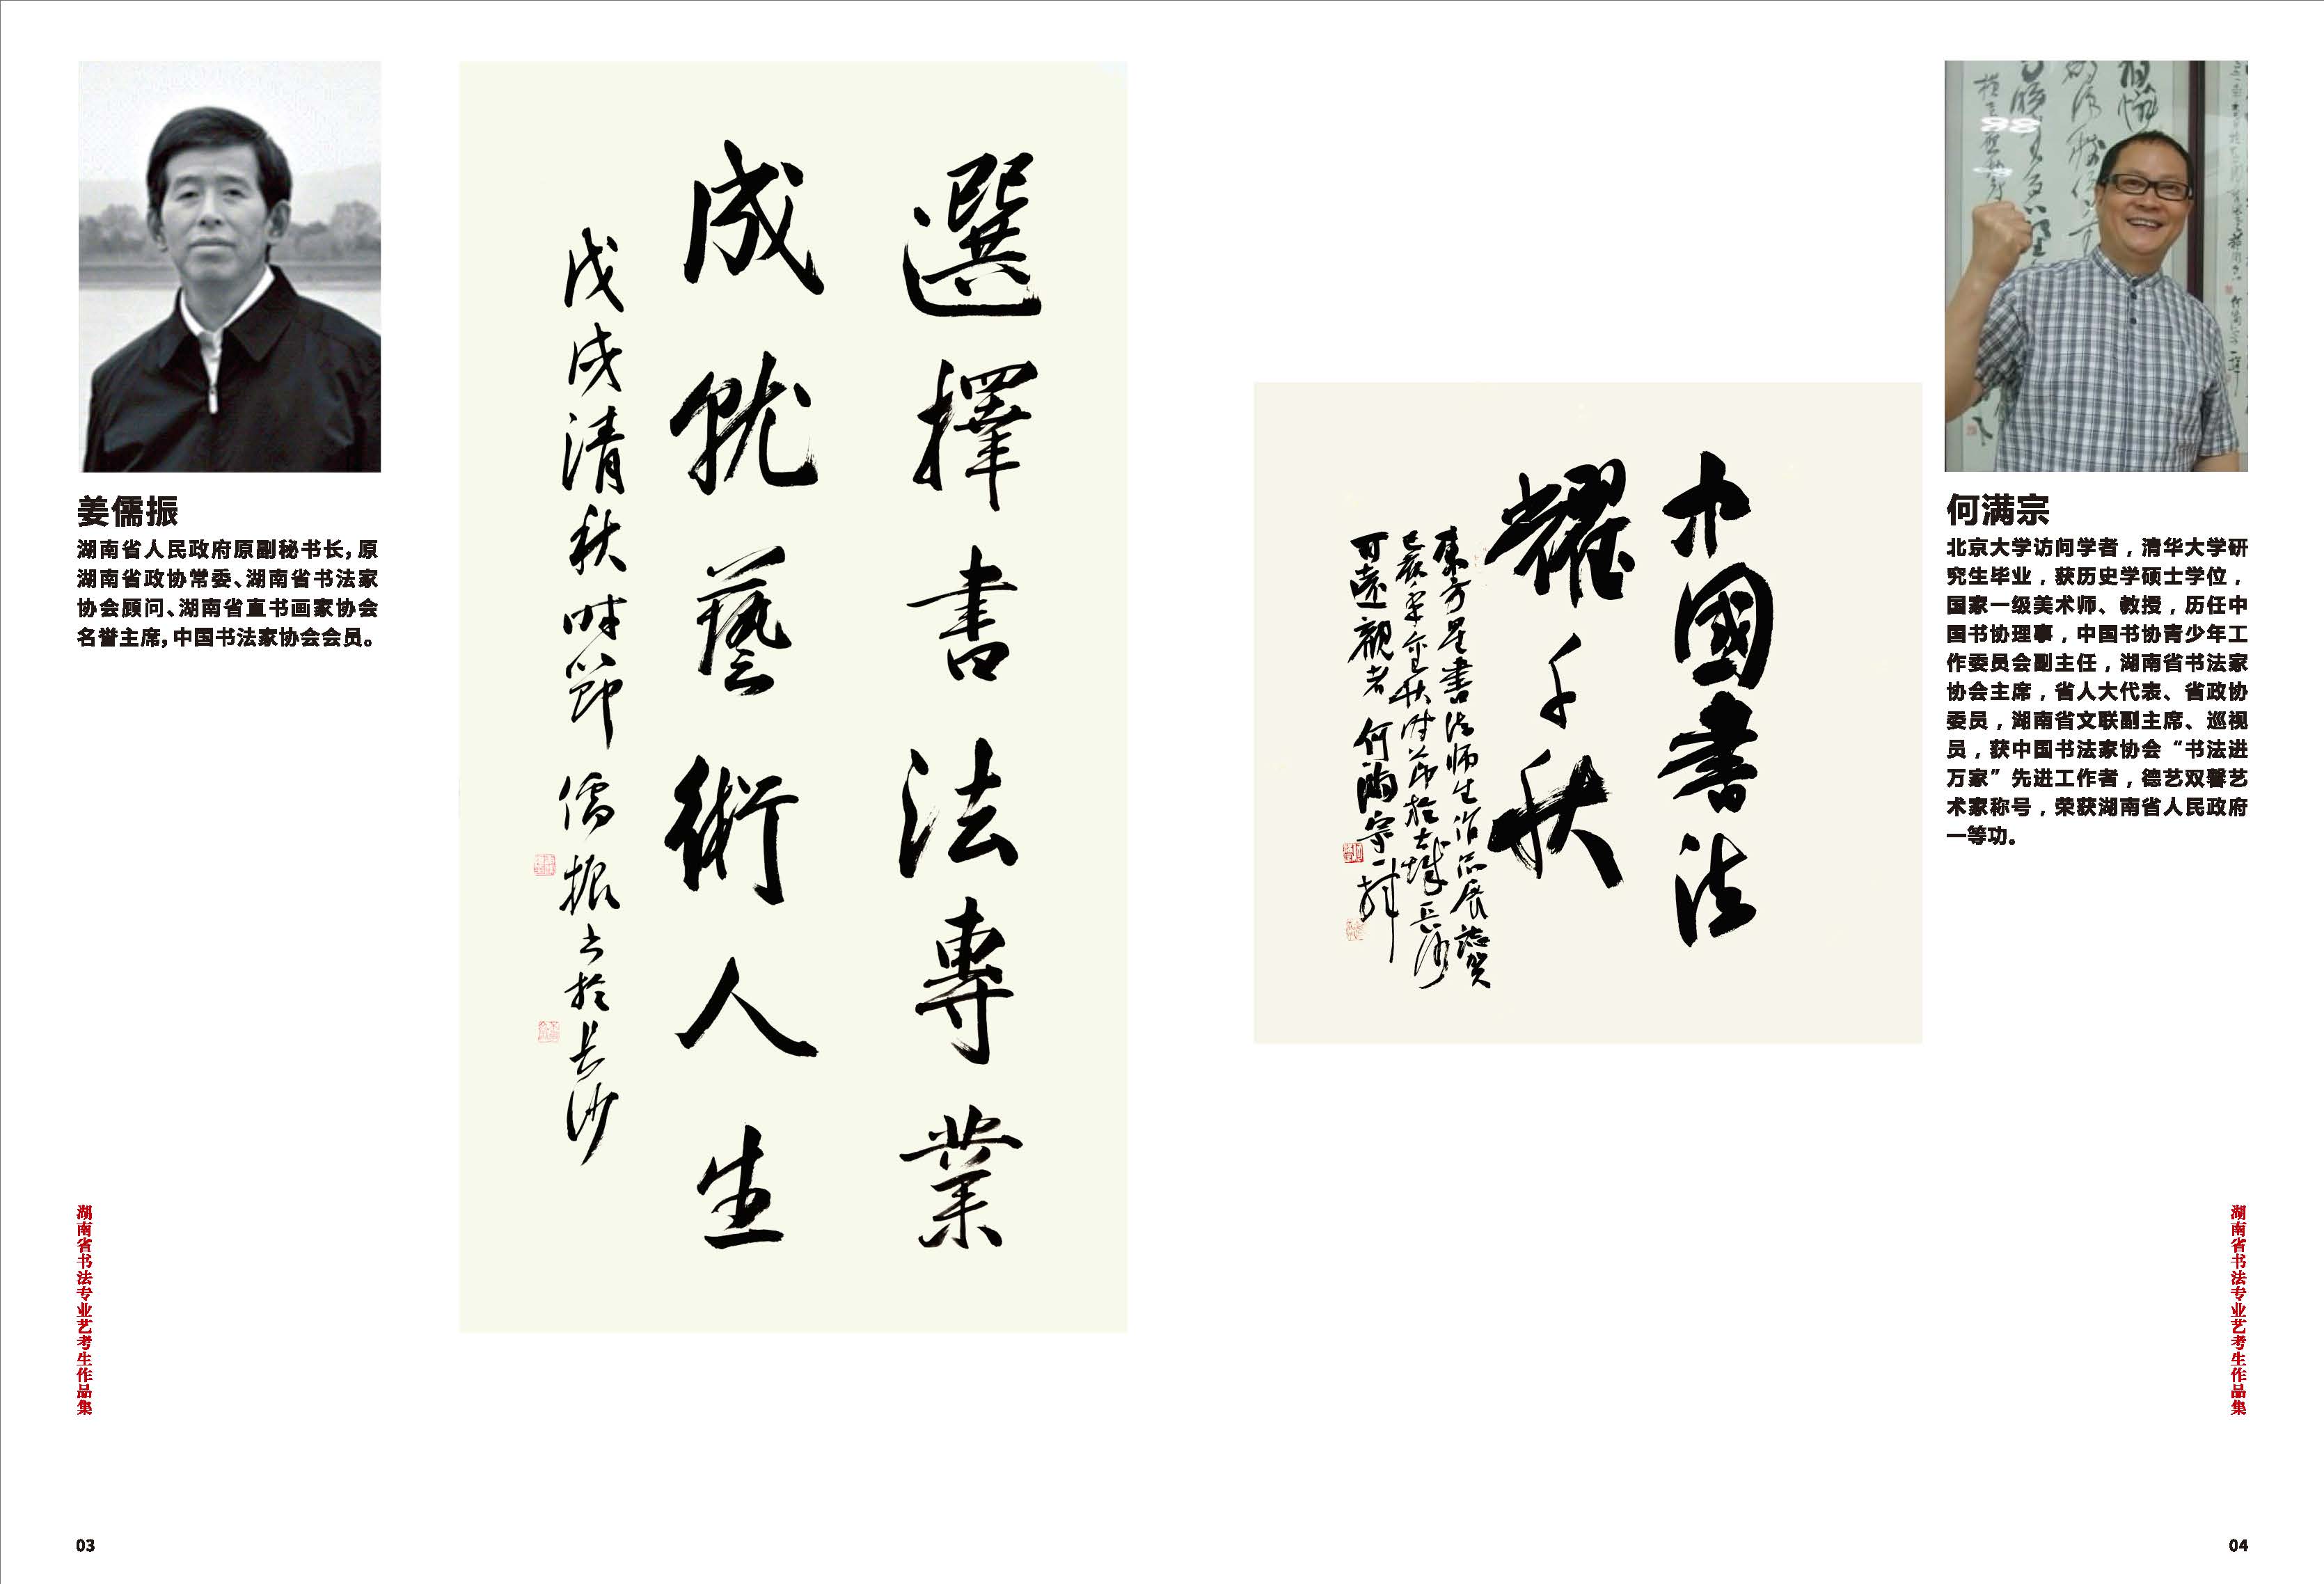 姜儒振
湖南省人民政府原副秘书长，原
湖南省政协常委、湖南省书法家
协会顾问、湖南省直书画家协会
名誉主席，中国书法家协会会员。
選擇書法專業
成就藝術人生
戊戌清秋時節儒振书於長沙
湖南省书法专业艺考生作品集
03
何满宗
北京大学访问学者，清华大学研
究生毕业，获历史学硕士学位，
国家一级美术师、教授，历任中
国书协理事，中国书协青少年工
作委员会副主任，湖南省书法家
协会主席，省人大代表、省政协
委员，湖南省文联副主席、巡视
员，获中国书法家协会“书法进
万家”先进工作者，德艺双馨艺
术家称号，荣获湖南省人民政府
一等功。
中國書法
耀千秋
東方星書法师生作品展誌贺
己亥年金秋时节於古城長沙
可遠觀者何满宗
湖南省书法专业艺考生作品集
04